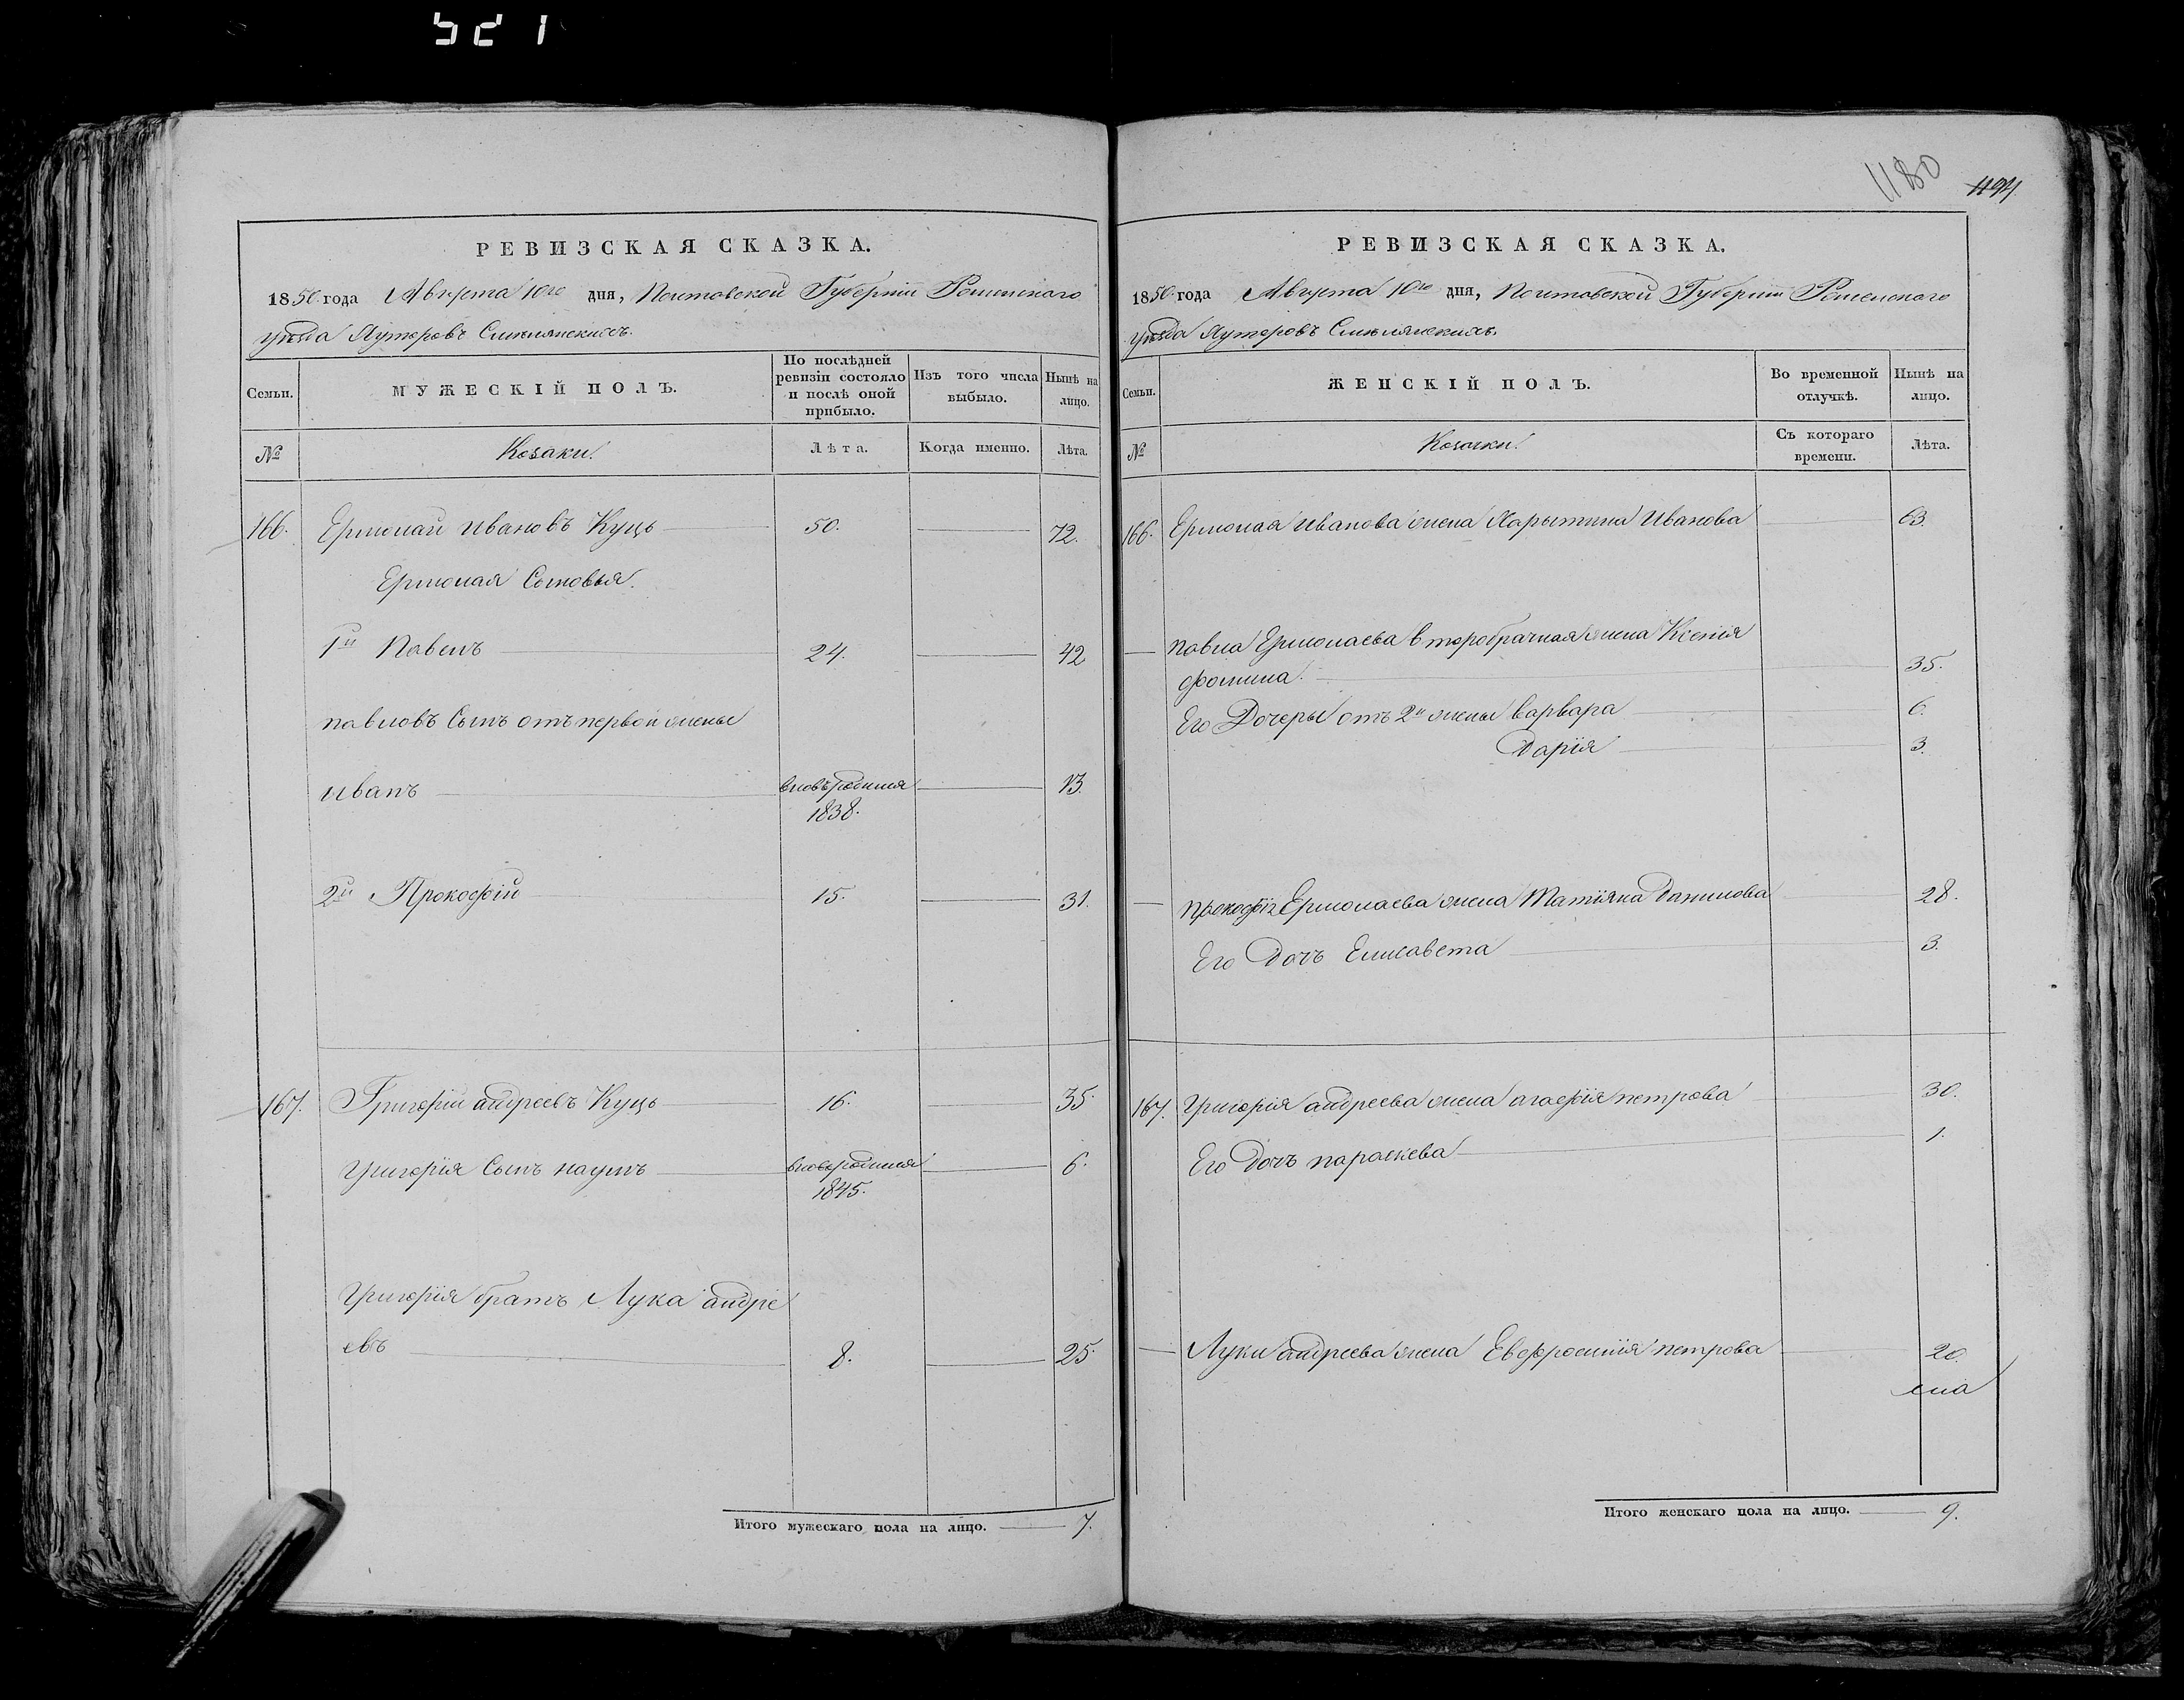 521
1180
1194
РЕВИЗСКАЯ СКАЗКА.
1850 года Августа 10го дня, Полтавской Губерніи Роменского
уѣзда Хуторовъ Смѣлянскихъ.
Семьи.
МУЖЕСКІЙ ПОЛЪ.
По послѣдней ревизіи состояло и послѣ оной прибыло.
Изъ того числа выбыло.
Нынѣ на лицо.
№
Козаки.
Лѣта.
Когда именно.
Лѣта.
166. Ермолай Ивановъ Куць 50. 72.
Ермолая Сыновья.
1й Павелъ 24. 42
павловъ Сынъ отъ первой жены
иванъ вновьродился 13.
1838.
2й Прокофій 15. 31.
167. Григорій андреевъ Куць 16. 35.
Григорія Сынъ наумъ вновьродился 6.
1845.
Григорія братъ Лука андре
евъ 8. 25.
Итого мужескаго пола на лицо. 7.
РЕВИЗСКАЯ СКАЗКА.
1850 года Августа 10го дня, Полтавской Губерніи Роменского
уѣзда Хуторовъ Смѣлянскихъ.
Семьи.
ЖЕНСКІЙ ПОЛЪ.
Во временной отлучкѣ.
Нынѣ на лицо.
№
Козачки.
Съ котораго времени.
Лѣта.
166. Ермолая Иванова жена Харытина Иванова 63.
павла Ермолаева второбрачная жена Ксенія
фомина. 35.
Его Дочеры отъ 2й жены варвара 6.
Дарія 3.
прокофія Ермолаева жена Татіяна Данилова 28.
Его Дочъ Елисавета 3.
167. Григорія андреева жена агафія петрова 30.
Его Дочъ параскева 1.
Луки андреева жена Евфросинія петрова 20.
Итого женскаго пола на лицо. 9.